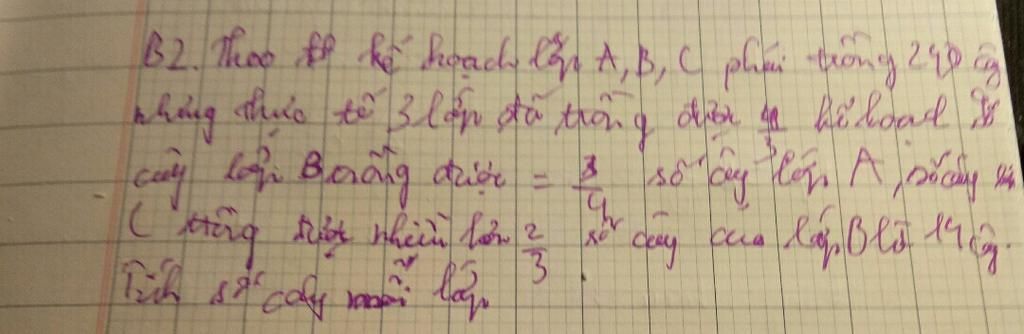 B2. Theo kế hoạch lớp A, B, C phải trồng 240 cây
nhưng thực tế 3 lớp đã trồng được 4/3 kế hoạch Số
cây lớp B trồng được = 3/4 số cây lớp A, số cây lớp
C trồng được nhiều hơn 2/3 số cây của lớp B là 14 cây.
Tính số cây mỗi lớp